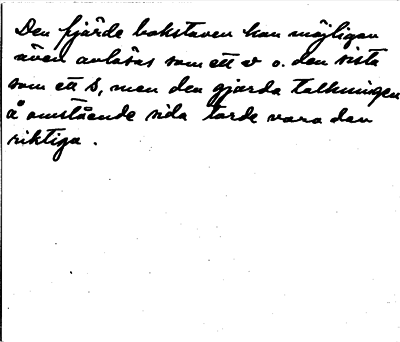 Den fjärde bokstaven kan möjligen
även avläsas som ett v o. den sista
som ett s, men den gjorda tolkningen
å omstående sida torde vara den
riktiga.